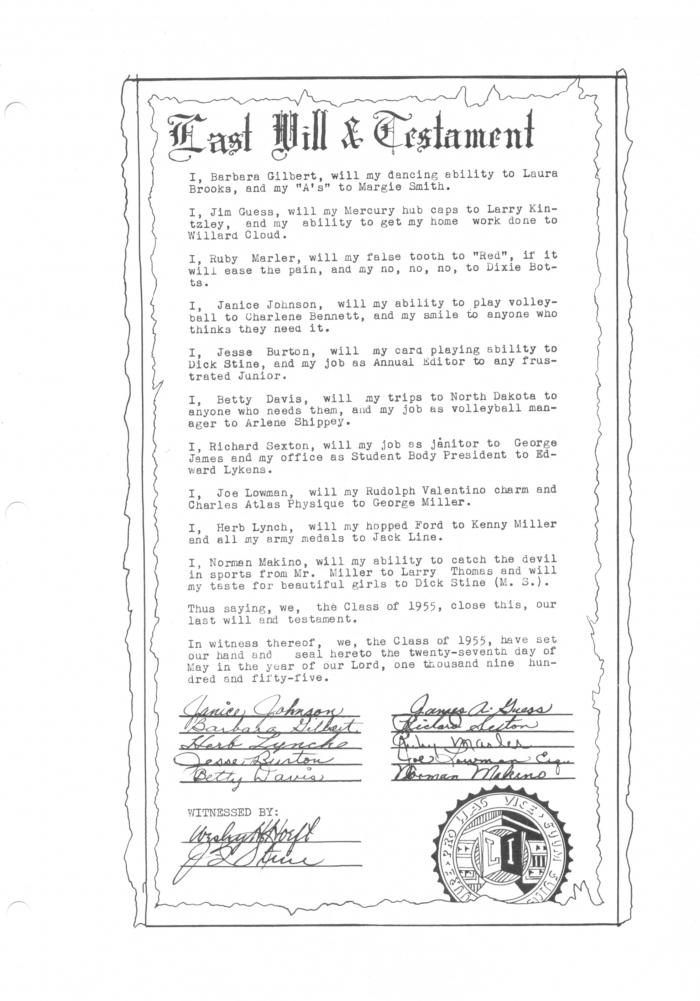 Last Will & Testament
I, Barbara Gilbert, will my dancing ability to Laura
Brooks, and my "A's" to Margie Smith.
I, Jim Guess, will my Mercury hub caps to Larry Kin-
tzley, and my ability to get my home work done to
Willard Cloud.
I, Ruby Marler, will my false tooth to "Red", if it
will ease the pain, and my no, no, no, to Dixie Bot-
ts.
I, Janice Johnson, will my ability to play volley-
ball to Charlene Bennett, and my smile to anyone who
thinks they need it.
I, Jesse Burton, will my card playing ability to
Dick Stine, and my job as Annual Editor to any frus-
trated Junior.
I, Betty Davis, will my trips to North Dakota to
anyone who needs them, and my job as volleyball man-
ager to Arlene Shippey.
I, Richard Sexton, will my job as janitor to George
James and my office as Student Body President to Ed-
ward Lykens.
I, Joe Lowman, will my Rudolph Valentino charm and
Charles Atlas Physique to George Miller.
I, Herb Lynch, will my hopped Ford to Kenny Miller
and all my army medals to Jack Line.
I, Norman Makino, will my ability to catch the devil
in sports from Mr. Miller to Larry Thomas and will
my taste for beautiful girls to Dick Stine (M. S.).
Thus saying, we, the Class of 1955, close this, our
last will and testament.
In witness thereof, we, the Class of 1955, have set
our hand and seal hereto the twenty-seventh day of
May in the year of our Lord, one thousand nine hun-
dred and fifty-five.
Janice Johnson
Barbara Gilbert
Herb Lynche
Jesse Burton
Betty Davis
James A. Guess
Richard Sexton
Ruby Marler
Joe Lowman Esq.
Norman Makino
WITNESSED BY:
J L Stine
PRO HAS VICE SUUM
LI